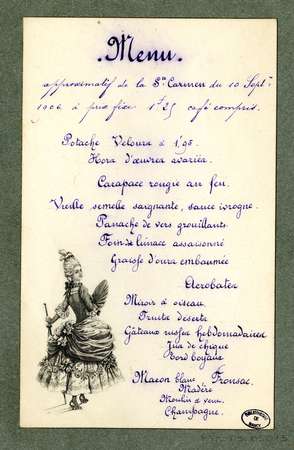 Menu.
approximatif de la Sn Carmen du 10 Sept.
1906 à prix fixe 1f25 café compris.
Potache Velours à 1,95.
Hors d'œuvres avariés.
Carapace rougie au feu.
Vieille semelle saignante, sauce ivrogne.
Panache de vers grouillants
Foin de limace assaisonné
Graisse d'ours embaumée
Acrobates
Miroir à oiseau
Fruits deserts
Gâteaux russes hebdomadaires
Jus de chique
Bord boyaux
Macon blanc Fronsac.
Madère
Moulin à vent
Champagne.